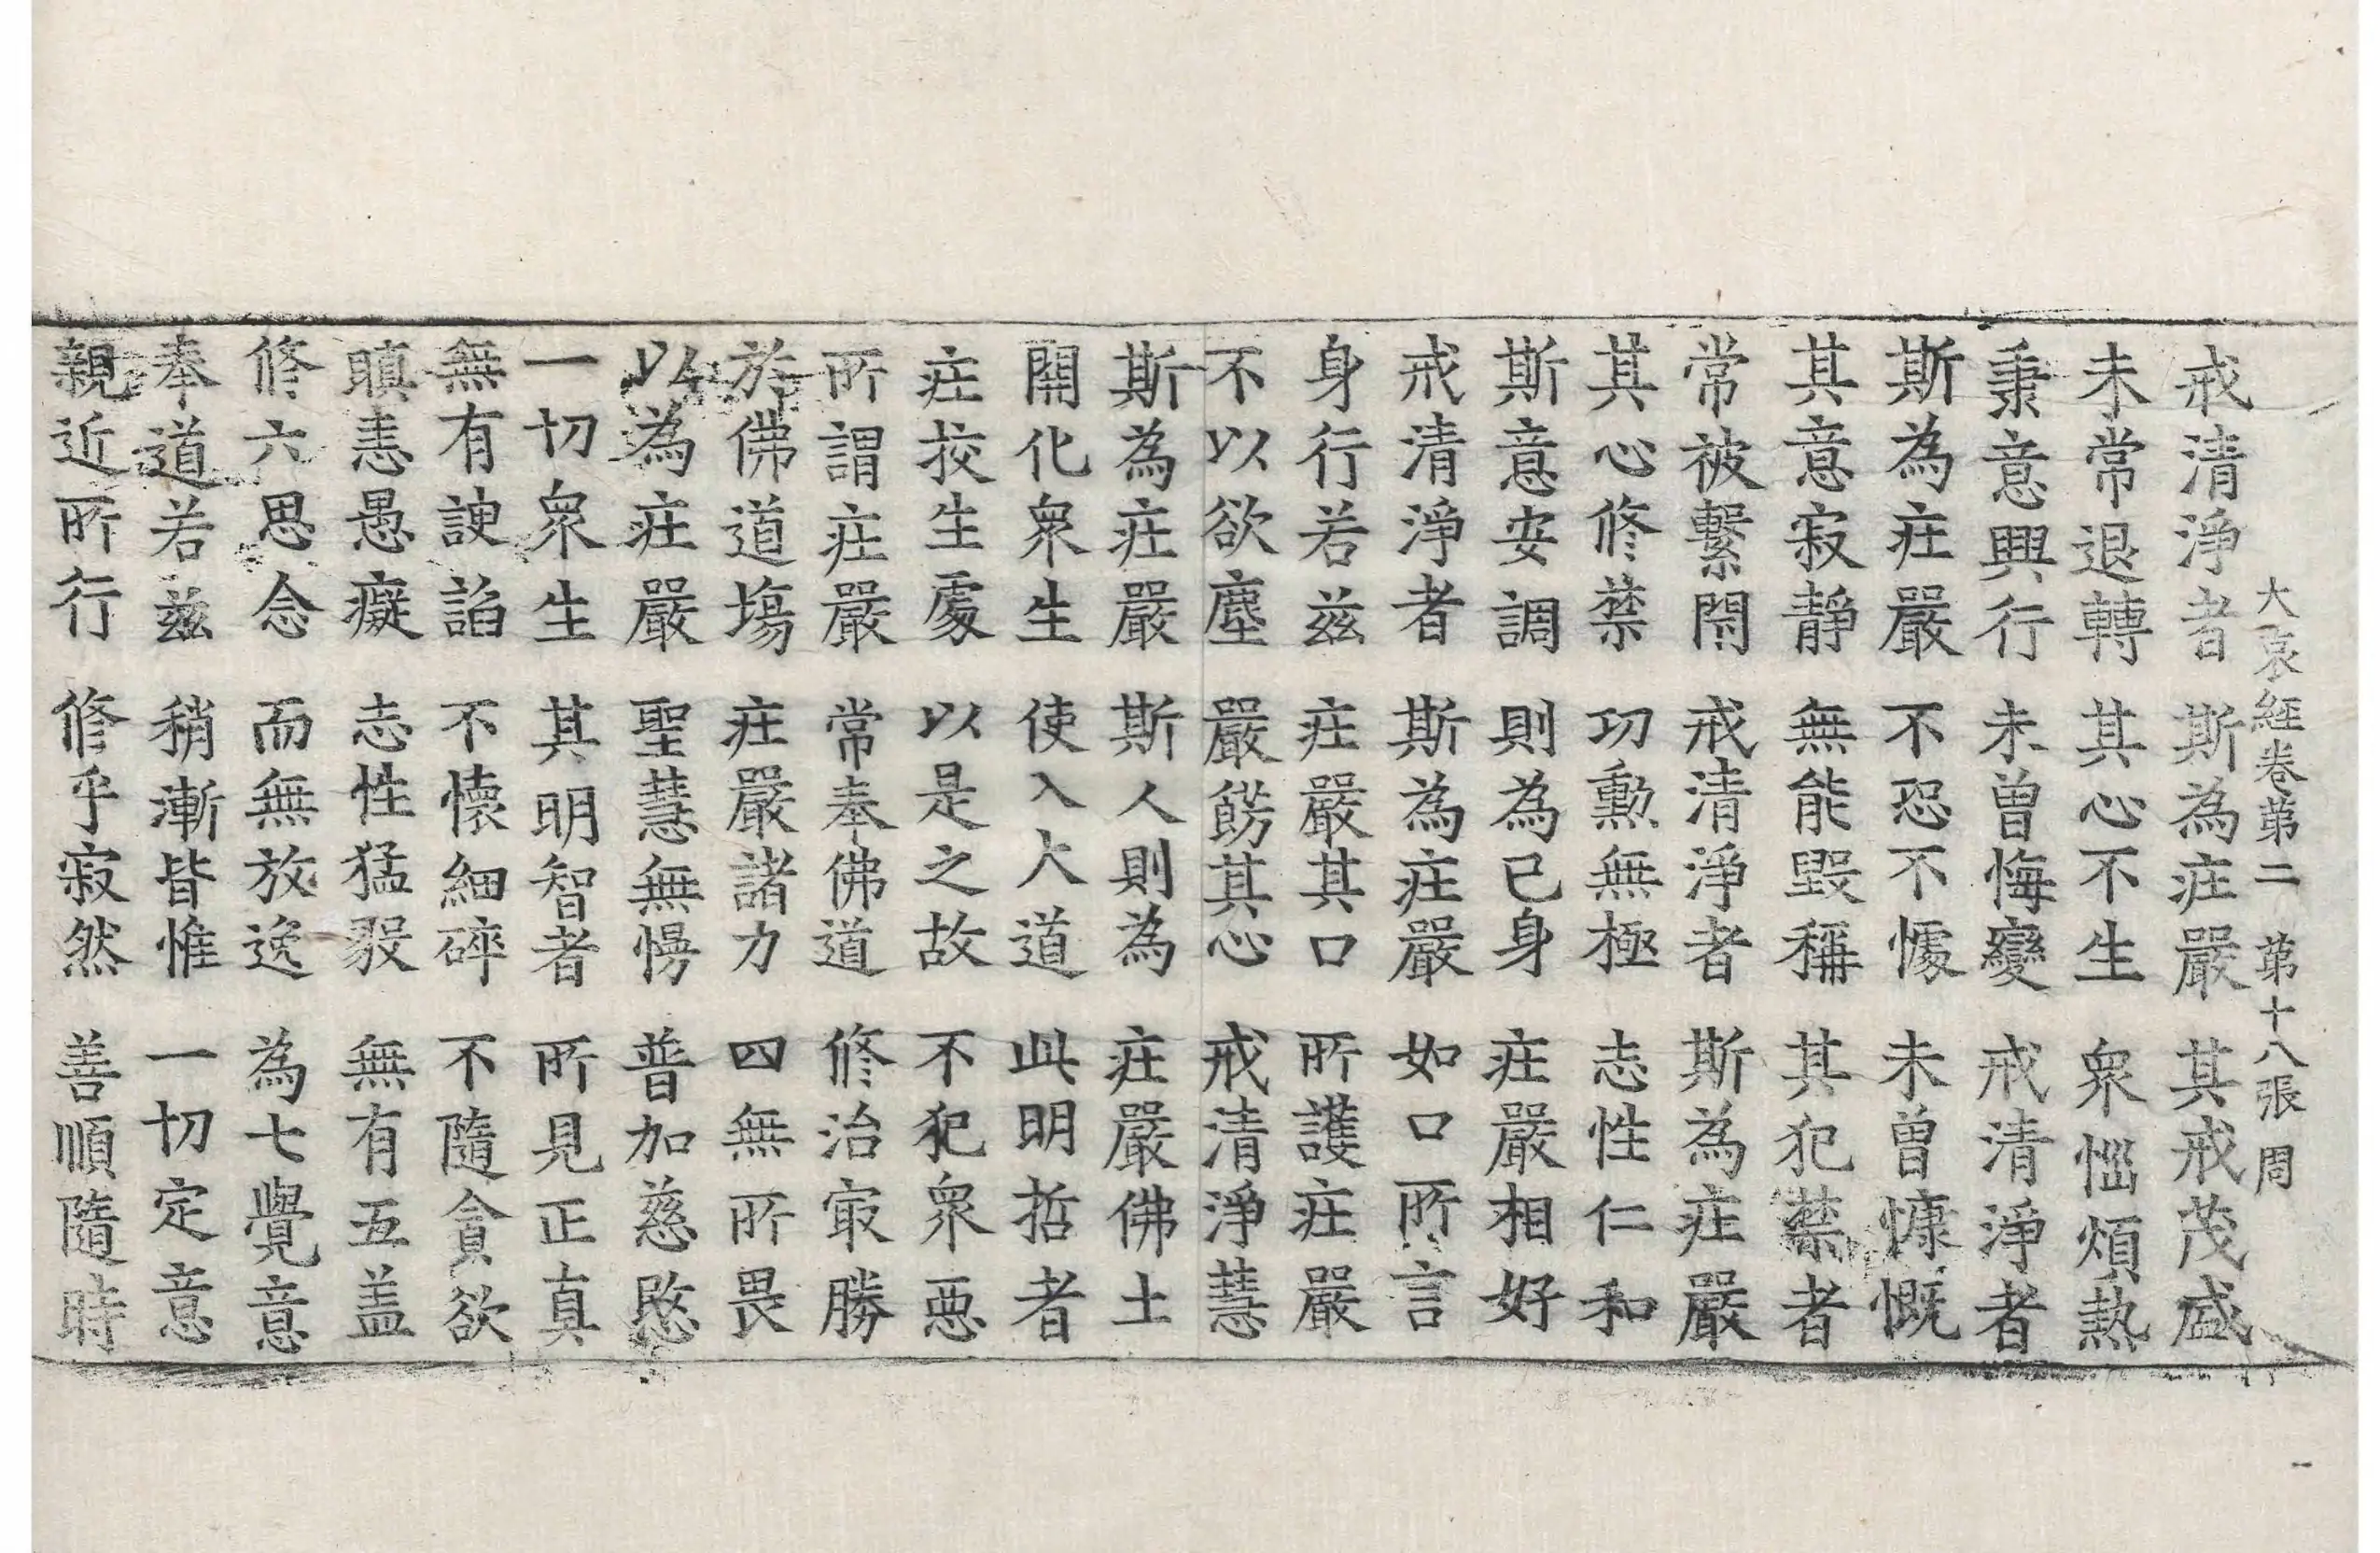 大哀經卷第二 第十八張 周
戒清淨者 斯為庄嚴 其戒茂盛
未常退轉 其心不生 衆惱煩熱
秉意興行 未曾悔變 戒清淨者
斯為庄嚴 不恐不懅 未曾慷慨
其意寂靜 無能毀稱 其犯禁者
常被繫閇 戒清淨者 斯為庄嚴
其心修禁 功勲無極 志性仁和
斯意安調 則為已身 庄嚴相好
戒清淨者 斯為庄嚴 如口所言
身行若茲 庄嚴其口 所護庄嚴
不以欲塵 嚴餝其心 戒清淨慧
斯為庄嚴 斯人則為 庄嚴佛土
開化衆生 使入大道 此明哲者
庄挍生處 以是之故 不犯衆惡
所謂庄嚴 常奉佛道 修治㝡勝
於佛道塲 庄嚴諸力 四無所畏
以為庄嚴 聖慧無愕 普加慈愍
一切衆生 其明智者 所見正真
無有諛諂 不懷細碎 不隨貪欲
瞋恚愚癡 志性猛毅 無有五盖
修六思念 而無放逸 為七覺意
奉道若茲 稍漸皆惟 一切定意
親近所行 修乎寂然 善順隨時